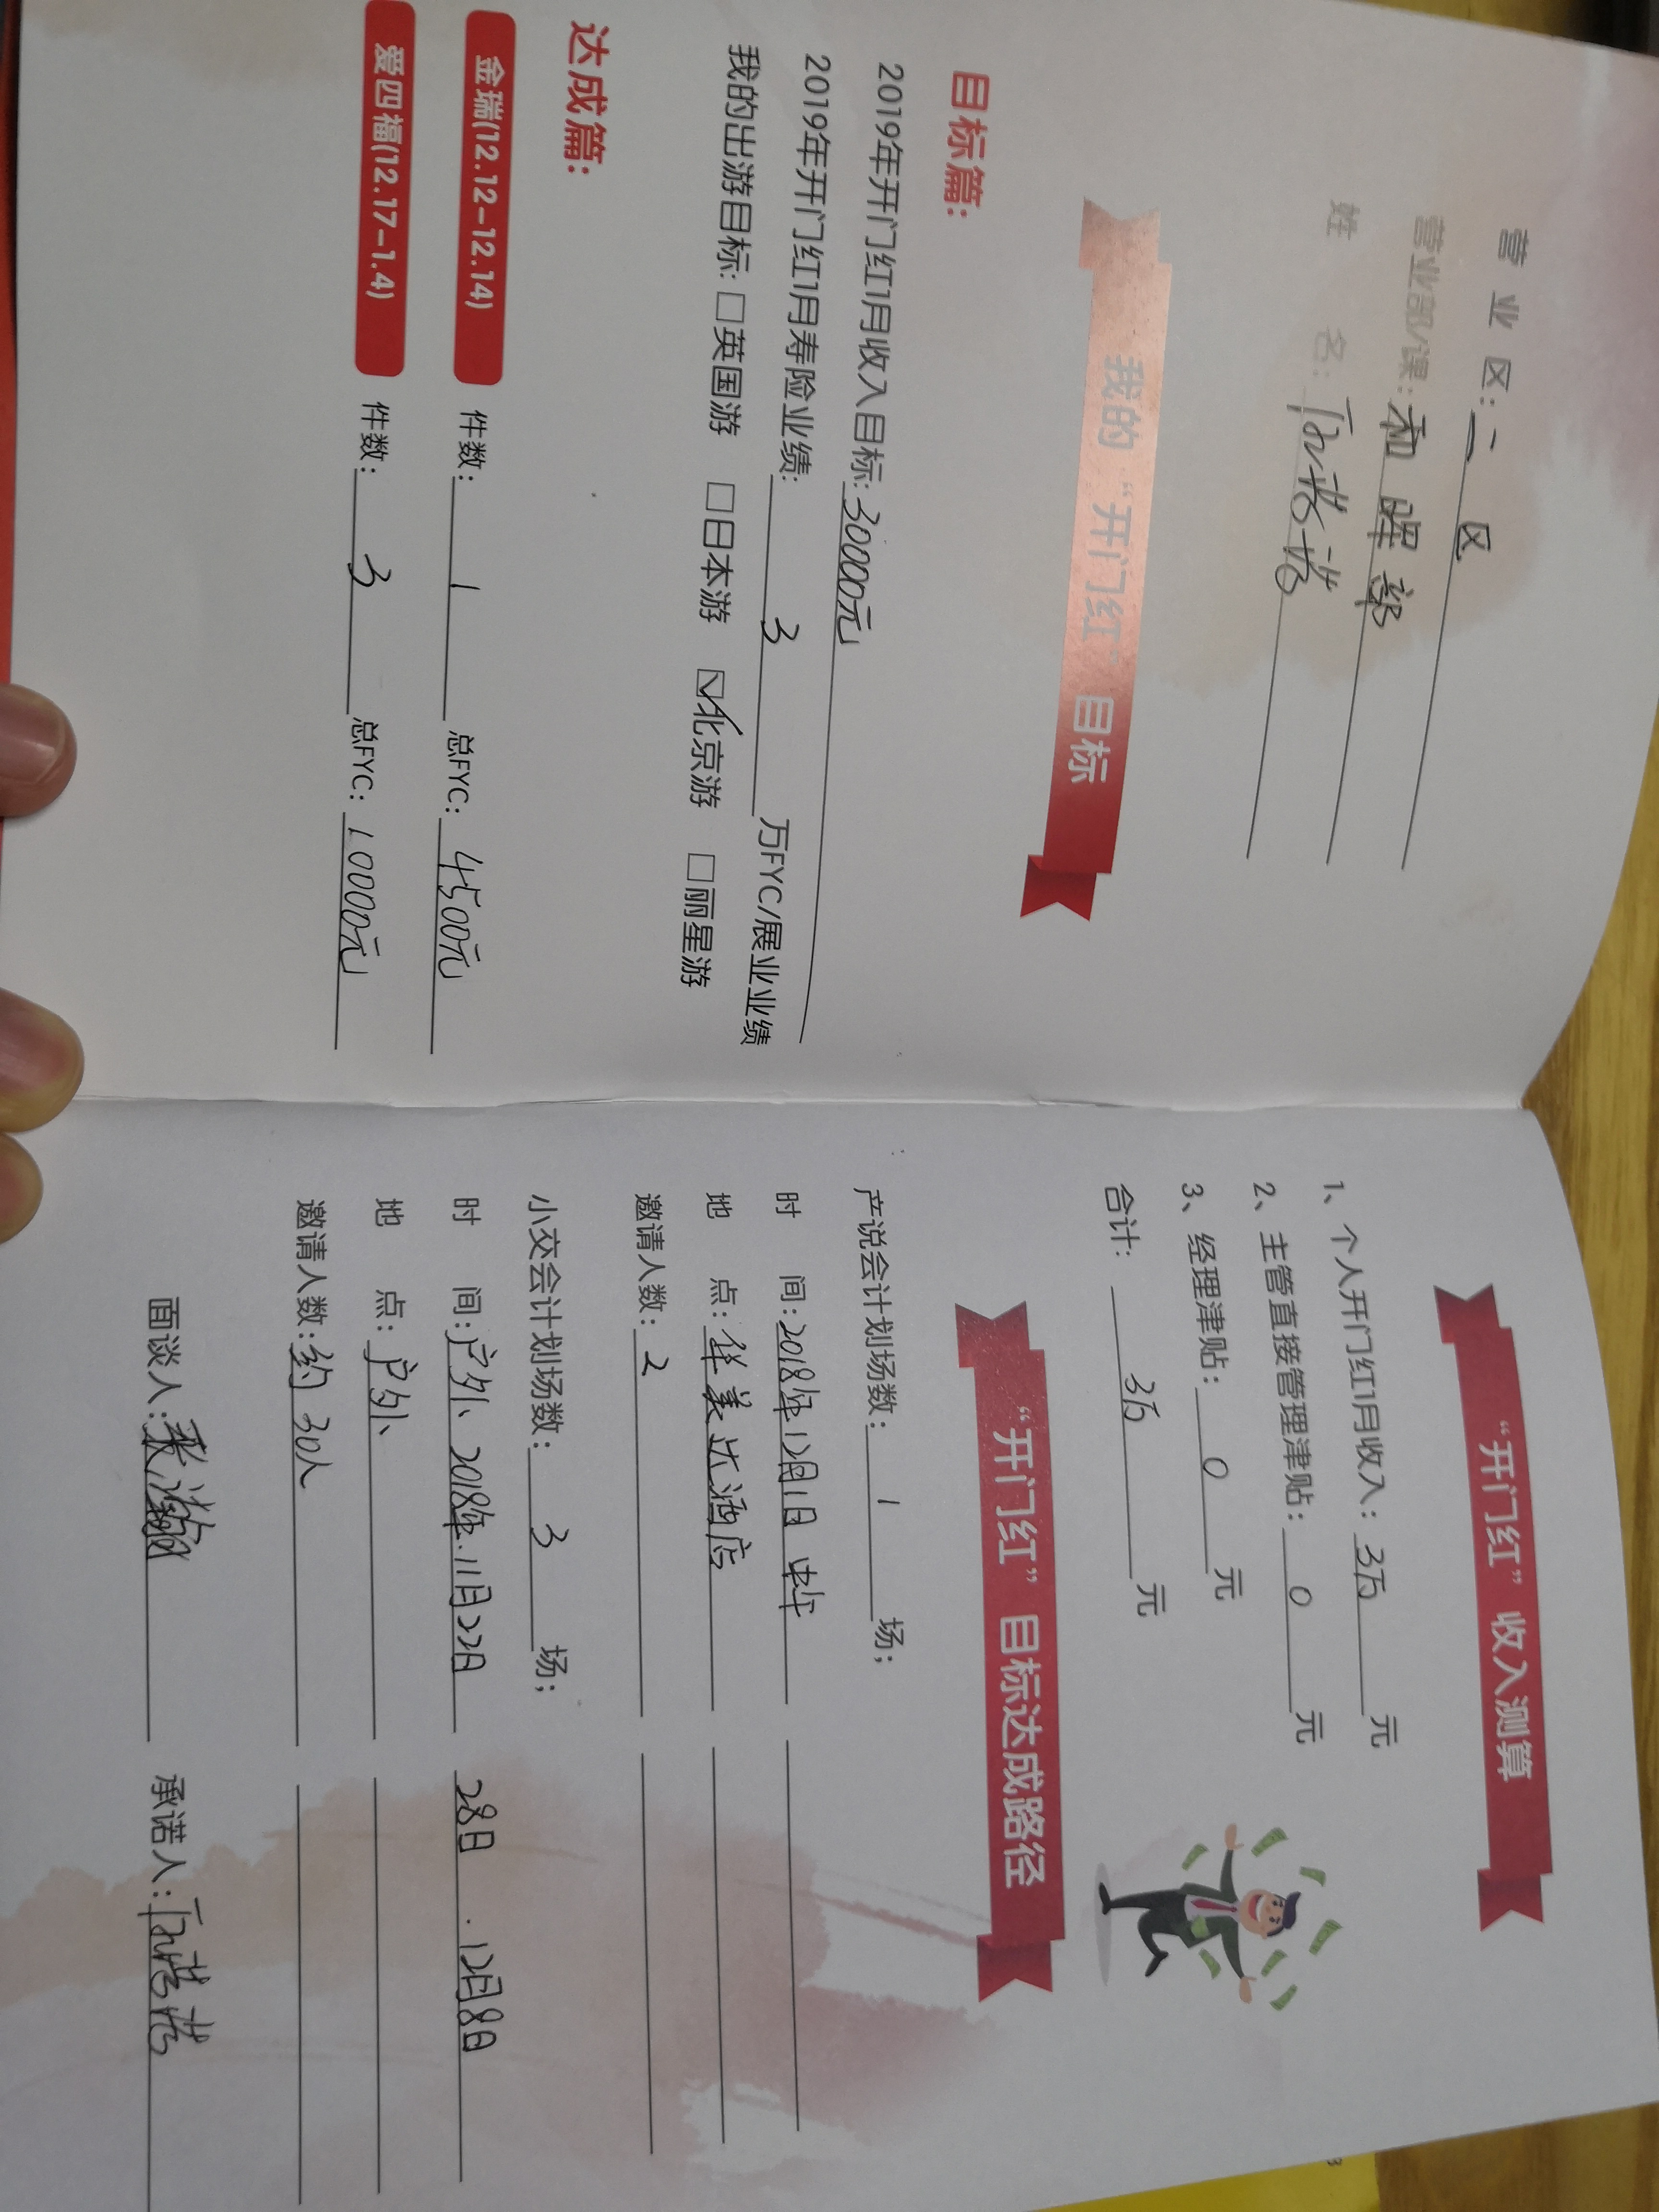 营业区：二区
营业部/课：和晖部
姓名：
我的“开门红”目标
目标篇：
2019年开门红1月收入目标：30000元
2019年开门红1月寿险业绩：3万FYC/展业业绩
我的出游目标：□英国游 □日本游 ☑北京游 □丽星游
达成篇：
金瑞(12.12-12.14) 件数：1 总FYC：4500元
爱四福(12.17-1.4) 件数：3 总FYC：10000元
“开门红”收入测算
1、个人开门红1月收入：3万元
2、主管直接管理津贴：0元
3、经理津贴：0元
合计：3万元
“开门红”目标达成路径
产说会计划场数：1场；
时间：2018年12月1日 中午
地点：华美达酒店
邀请人数：2
小交会计划场数：3场；
时间：户外、2018年.11月22日 28日.12月8日
地点：户外、
邀请人数：约30人
面谈人： 承诺人：